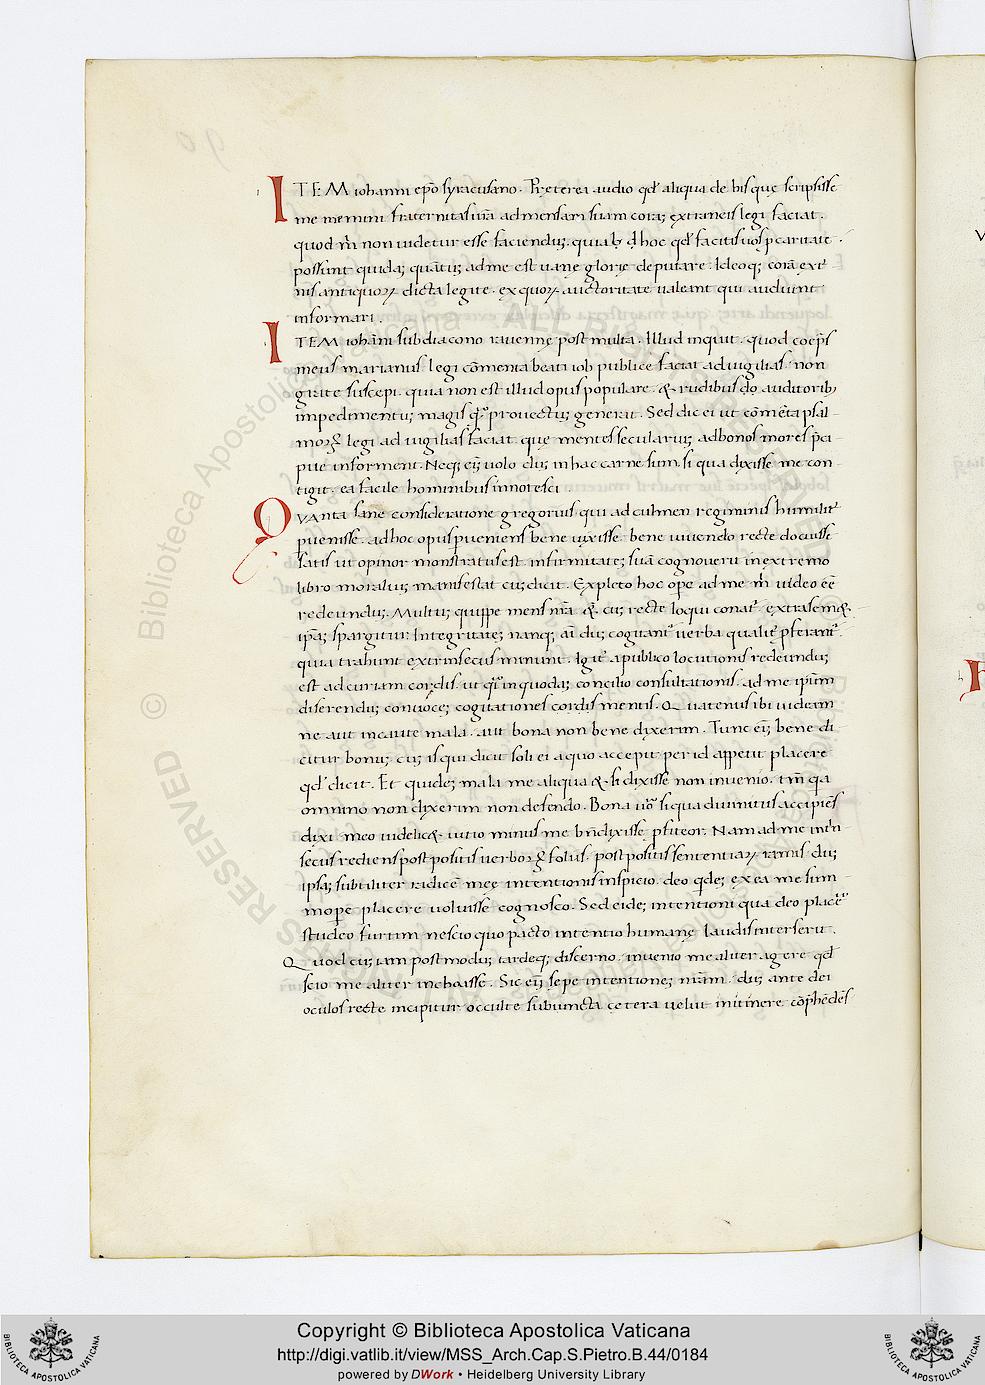 ITEM iohanni epo syracusano. Preterea audio qd aliqua de his que scripsisse
me memini fraternitas ura ad mensam suam coraz extraneis legi faciat.
quod m non uidetur esse faciendu;. quia &
possunt quida; quatu; ad me est uane glorie deputare. Ideoq; cora exte
nis antiquoꝝ dicta legite. ex quoꝝ auctoritate ualeant qui audiunt
informari.
ITEM iohani subdiacono rauenne post multa. Illud inquit. quod coeps
meus marianus. legi comenta beati iob publice faciat ad uigilias. non
grate suscepi. quia non est illud opus populare. & rudibus auditorib;
impedimentu; magis qua prouectu; generat. Sed dic ei ut comenta psal
moꝝ legi ad uigilias faciat. que mentes seculariu; ad bonos mores pci
pue informent. Neq; eni uolo du; in hac carne sum. si qua dixisse me con
tigit. ea facile hominibus innotesci.
QVAnta sane consideratione gregorius. qui ad culmen regiminis humilit
puenisse. ad hoc opus perueniens bene uixisse. bene uiuendo recte docuisse
satis ut opinor monstratus est. infirmitate; sua cognoueru in extremo
libro moraliu; manifestat cu; dicit. Expleto hoc ope ad me m uideo ee
redeundu;. Multu; quippe mens nra & cu; recte loqui conat extra sem&
ipa; spargitur. Integritate; nanq; ai du; cogitant uerba qualit pferant.
quia trahunt extrinsecus minunt. Igit a publico locutionis redeundu;
est ad curiam cordis. ut qsi in quoda; concilio consultationis. ad me ipsum
diserendu; conuoce; cogitationes cordis mentis. Quatenus ibi uideam
ne aut incaute mala. aut bona non bene dixerim. Tunc eni bene di
citur bonu;. cu; is qui dicit soli ei a quo accepit per id appetit placere
qd dicit. Et quide; mala me aliqua & si dixisse non inuenio. tm qa
omnino non dixerim non defendo. Bona uo si qua diuinitus accipies
dixi. meo uidelic& uitio minus me bn dixisse pfiteor. Nam ad me intrin
secus rediens postpositis uerboꝝ foliis. postpositis sententiaꝝ ramis. du;
ipsa; subtiliter radice mee intentionis inspicio. deo qde; ex ea me sum
mope placere uoluisse cognosco. Sed eide; intentioni qua deo place
studeo furtim nescio quo pacto intentio humane laudis inter serit.
Quod cu; iam postmodu; tardeq; discerno. inuenio me aliter agere qd
scio me aliter inchoasse. Sic eni sepe intentione; nram. du; ante dei
oculos recte incipitur occulte subiuncta cetera uelut in itinere cophedes
Copyright © Biblioteca Apostolica Vaticana
http://digi.vatlib.it/view/MSS_Arch.Cap.S.Pietro.B.44/0184
powered by DWork • Heidelberg University Library